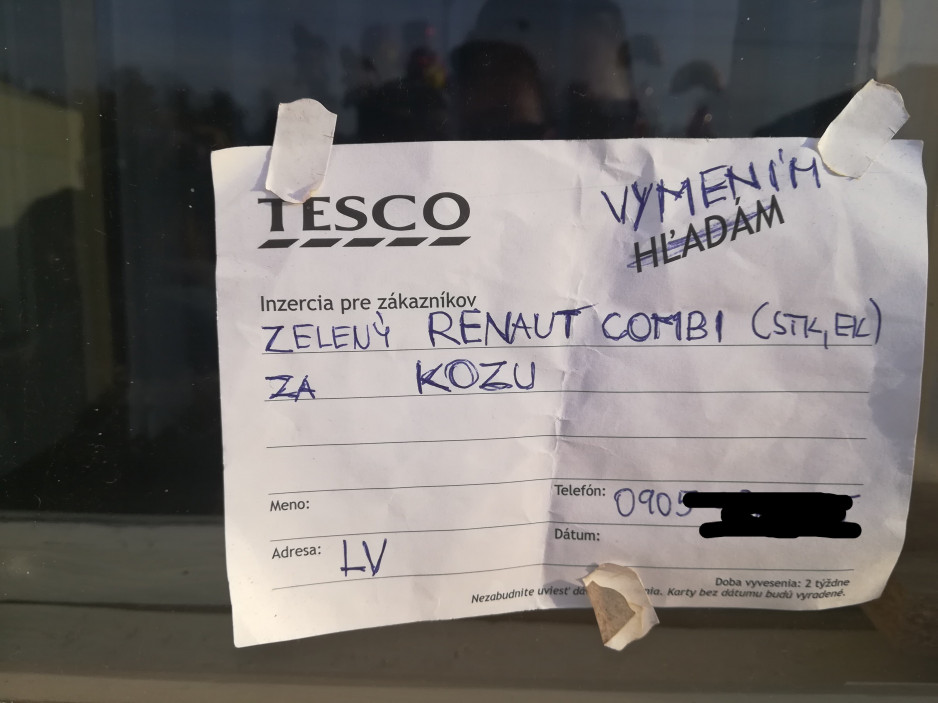 TESCO
VYMENÍM
HĽADÁM
Inzercia pre zákazníkov
ZELENÝ RENAUT COMBI (STK, EK)
ZA KOZU
Meno:
Telefón: 0905
Adresa: LV
Dátum:
Doba vyvesenia: 2 týždne
Nezabudnite uviesť Karty bez dátumu budú vyradené.